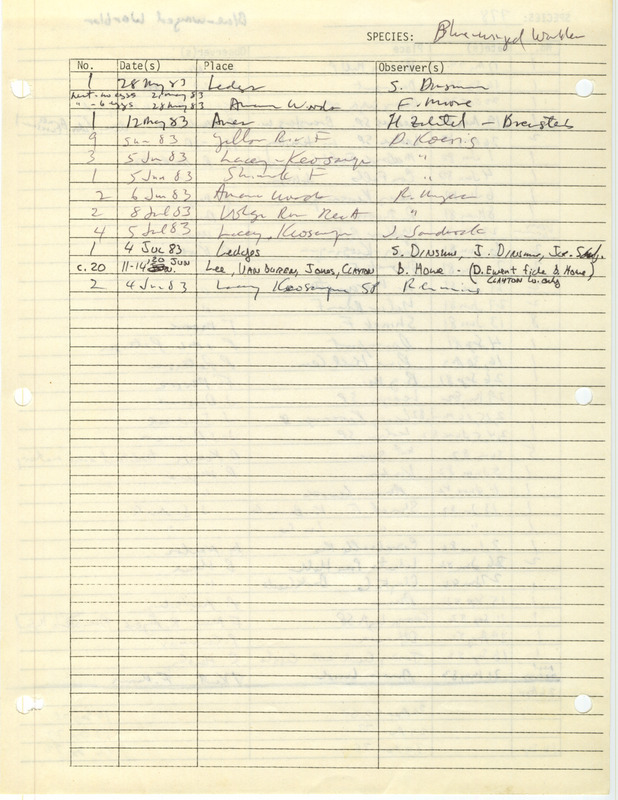 SPECIES: Blue-winged Warbler
No. Date(s) Place Observer(s)
1 28 May 83 Ledges S. Dinsmore
nest - no eggs 21 May 83
" - 6 eggs 28 May 83 Amana Woods F. Moore
1 12 May 83 Ames H Zaletel -
9 Jun 83 Yellow River F D. Koenig
3 5 Jun 83 Lacey - Keosauqua "
1 5 Jun 83 Shimek F "
2 6 Jun 83 Amana Woods R.
2 8 Jul 83 "
4 5 Jul 83 Lacey, Keosauqua J. Sandrock
1 4 Jun 83 Ledges S. Dinsmore, J. Dinsmore,
c. 20 11-14 JUN Lee, VAN BUREN, JONES, CLAYTON B. Howe - (D. Ewert fide B Howe)
CLAYTON Co. only
2 4 Jun 83 Lacey Keosauqua SP R Cummins